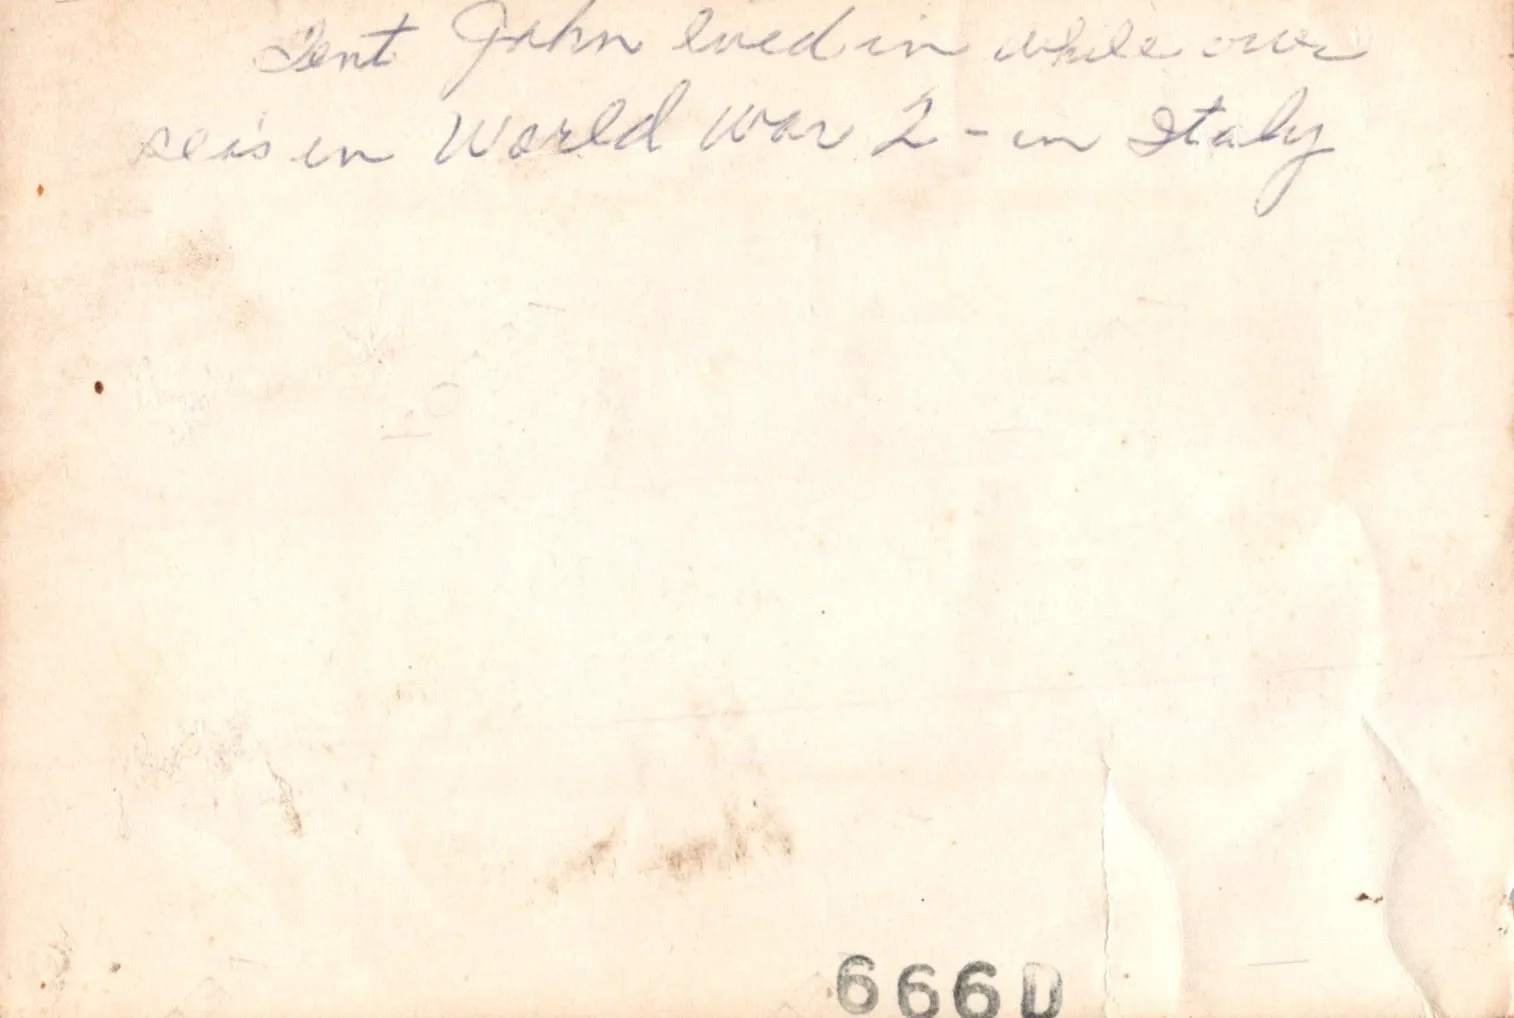 Tent John lived in while over
sea's in World War 2 - in Italy
666D